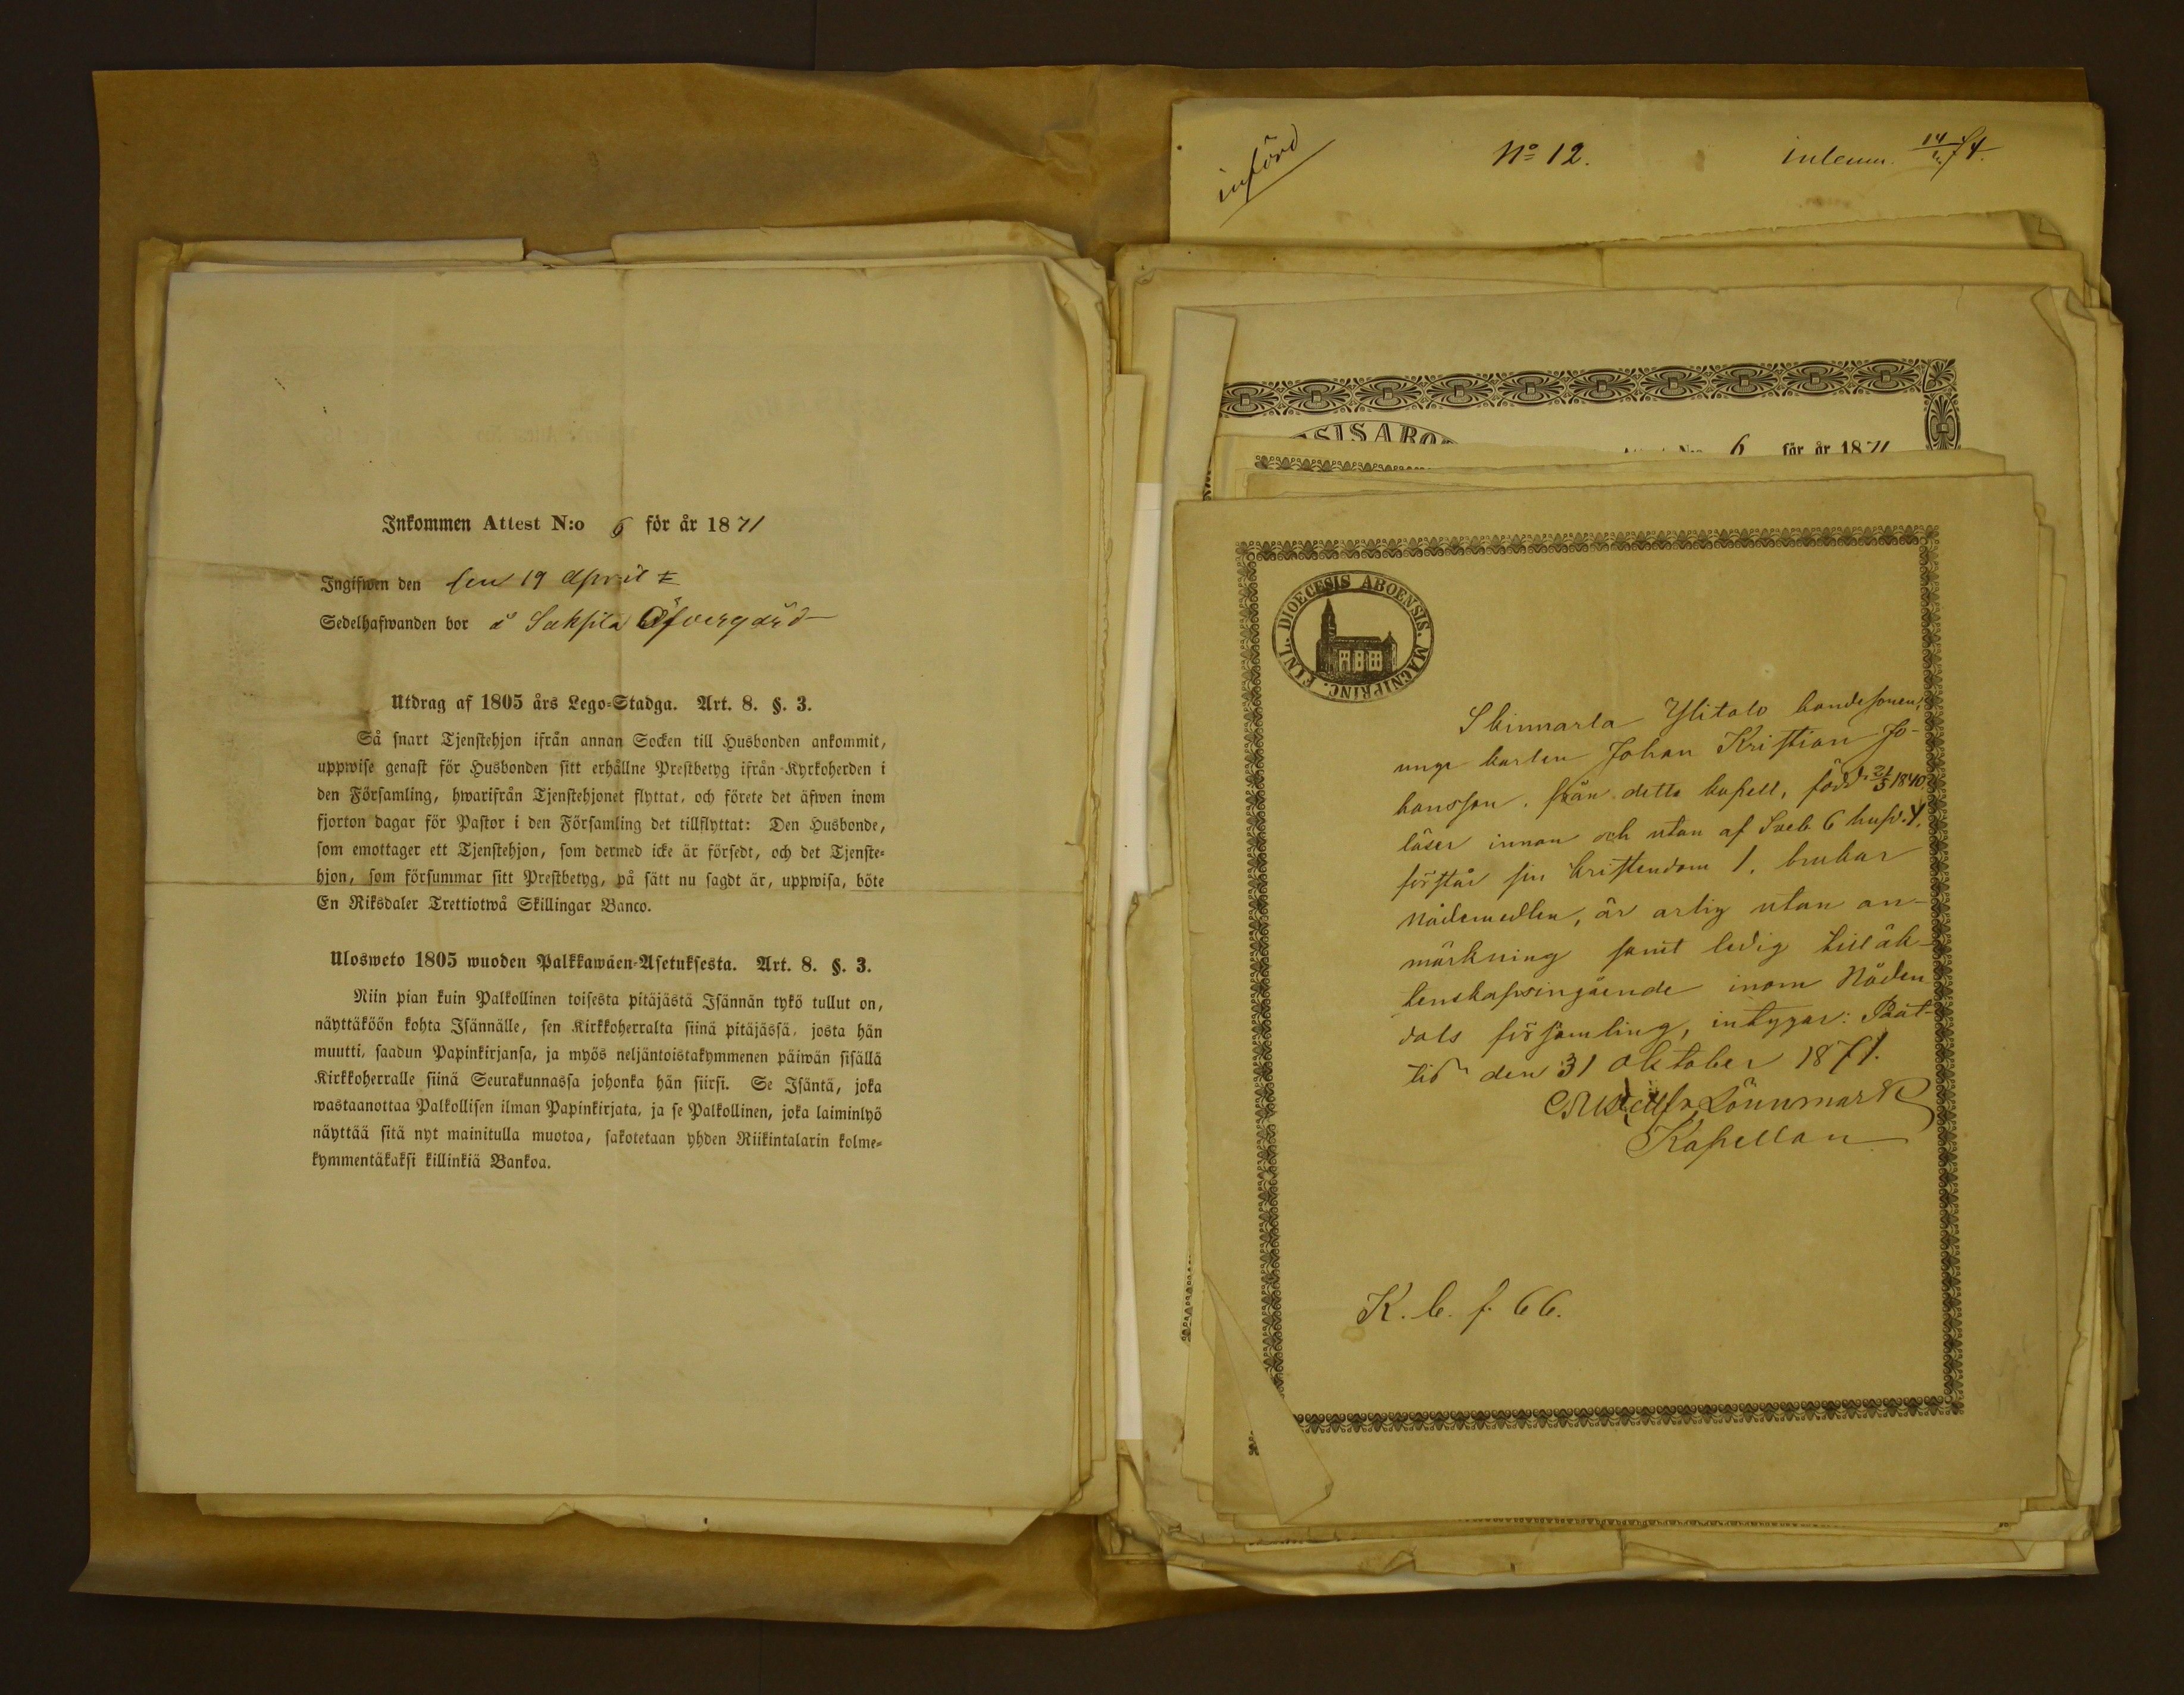 Inkommen Attest N:o 6 för år 1871
Ingifwen den den 19 April
Sedelhafwanden bor i Saksila Öfvergård
Utdrag af 1805 års Lego-Stadga. Art. 8. §. 3.
Så snart Tjenstehjon ifrån annan Socken till Husbonden ankommit,
uppwise genast för Husbonden sitt erhållne Prestbetyg ifrån Kyrkoherden i
den Församling, hwarifrån Tjenstehjonet flyttat, och förete det äfwen inom
fjorton dagar för Pastor i den Församling det tillflyttat: Den Husbonde,
som emottager ett Tjenstehjon, som dermed icke är försedt, och det Tjenste-
hjon, som försummar sitt Prestbetyg, på sätt nu sagdt är, uppwisa, böte
En Riksdaler Trettiotwå Skillingar Banco.
Ulosweto 1805 wuoden Palkkawäen-Asetuksesta. Art. 8. §. 3.
Niin pian kuin Palkollinen toisesta pitäjästä Isännän tykö tullut on,
näyttäköön kohta Isännälle, sen Kirkkoherralta siinä pitäjässä, josta hän
muutti, saadun Papinkirjansa, ja myös neljäntoistakymmenen päiwän sisällä
Kirkkoherralle siinä Seurakunnassa johonka hän siirsi. Se Isäntä, joka
wastaanottaa Palkollisen ilman Papinkirjata, ja se Palkollinen, joka laiminlyö
näyttää sitä nyt mainitulla muotoa, sakotetaan yhden Riikintalarin kolme-
kymmentäkaksi killinkiä Bankoa.
införd
No 12.
inlemn. 14/74.
SIS ABO
6 för år 1871
DIOECESIS ABOENSIS. MAGNIPRINC. FINL.
Skinnarla Ylitalo bondesonen,
unge karlen Johan Kristian Jo-
hansson, från detta kapell, född 21/5 1840,
läser innan och utan af Sveb. 6 husp. 4,
förstår sin kristendom 1, brukar
Nådemedlen, är ärlig utan an-
märkning samt ledig till äk-
tenskapsingående inom Nåden-
dals församling, intygar: Påt-
tis den 31 Oktober 1871.
Lönnmark
Kapellan
K. b. f. 66.